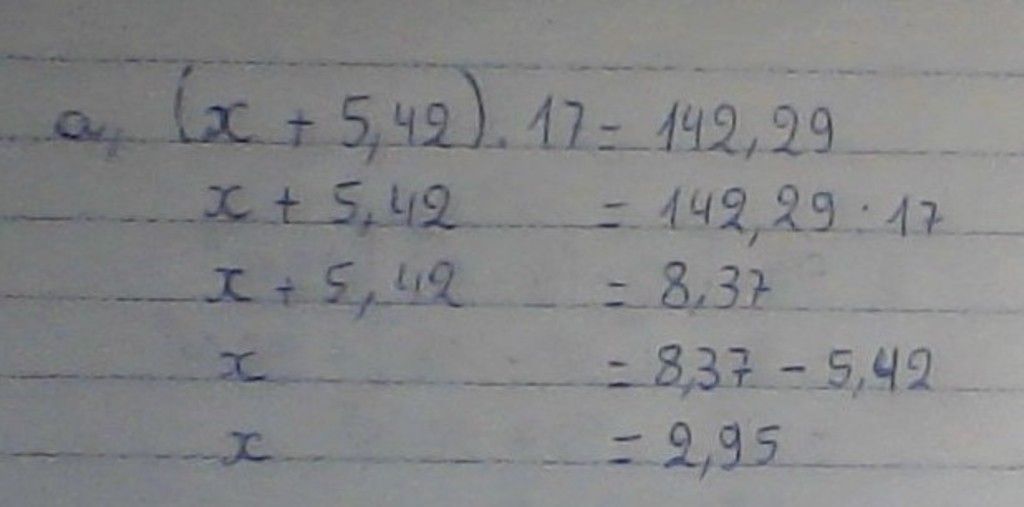 a, (x + 5,42). 17 = 142,29
x + 5,42 = 142,29 : 17
x + 5,42 = 8,37
x = 8,37 - 5,42
x = 2,95